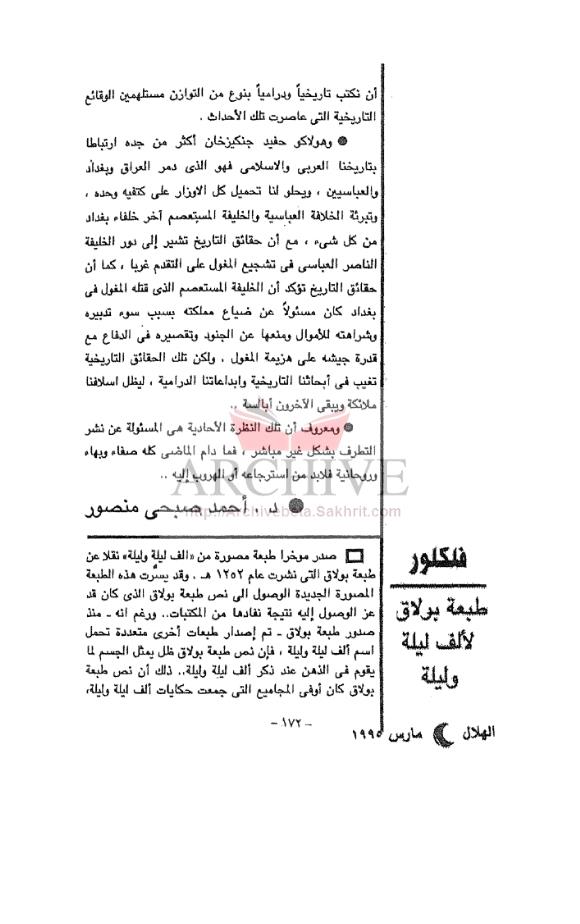 أن نكتب تاريخياً ودرامياً بنوع من التوازن مستلهمين الوقائع
التاريخية التى عاصرت تلك الأحداث .
● وهولاكو حفيد جنكيزخان أكثر من جده ارتباطا
بتاريخنا العربى والاسلامى فهو الذى دمر العراق وبغداد
والعباسيين ، ويحلو لنا تحميل كل الاوزار على كتفيه وحده ،
وتبرئة الخلافة العباسية والخليفة المستعصم آخر خلفاء بغداد
من كل شىء ، مع أن حقائق التاريخ تشير إلى دور الخليفة
الناصر العباسى فى تشجيع المغول على التقدم غربا ، كما أن
حقائق التاريخ تؤكد أن الخليفة المستعصم الذى قتله المغول فى
بغداد كان مسئولاً عن ضياع مملكته بسبب سوء تدبيره
وشراهته للأموال ومنعها عن الجنود وتقصيره فى الدفاع مع
قدرة جيشه على هزيمة المغول . ولكن تلك الحقائق التاريخية
تغيب فى أبحاثنا التاريخية وابداعاتنا الدرامية ، ليظل اسلافنا
ملائكة ويبقى الآخرون أبالسة ..
● ومعروف أن تلك النظرة الأحادية هى المسئولة عن نشر
التطرف بشكل غير مباشر ، فما دام الماضى كله صفاء وبهاء
وروحانية فلابد من استرجاعه أو الهروب إليه ..
ARCHIVE
● د . أحمد صبحى منصور
http://Archivebeta.Sakhrit.com
فلكلور
طبعة بولاق
لألف ليلة
وليلة
صدر مؤخرا طبعة مصورة من «الف ليلة وليلة» نقلا عن
طبعة بولاق التى نشرت عام ١٢٥٢ هـ . وقد يسّرت هذه الطبعة
المصورة الجديدة الوصول الى نص طبعة بولاق الذى كان قد
عز الوصول إليه نتيجة نفادها من المكتبات.. ورغم انه ـ منذ
صدور طبعة بولاق ـ تم إصدار طبعات أخرى متعددة تحمل
اسم ألف ليلة وليلة ، فإن نص طبعة بولاق ظل يمثل الجسم لما
يقوم فى الذهن عند ذكر ألف ليلة وليلة.. ذلك أن نص طبعة
بولاق كان أوفى المجاميع التى جمعت حكايات ألف ليلة وليلة،
- ١٧٢ -
الهلال مارس ١٩٩٥